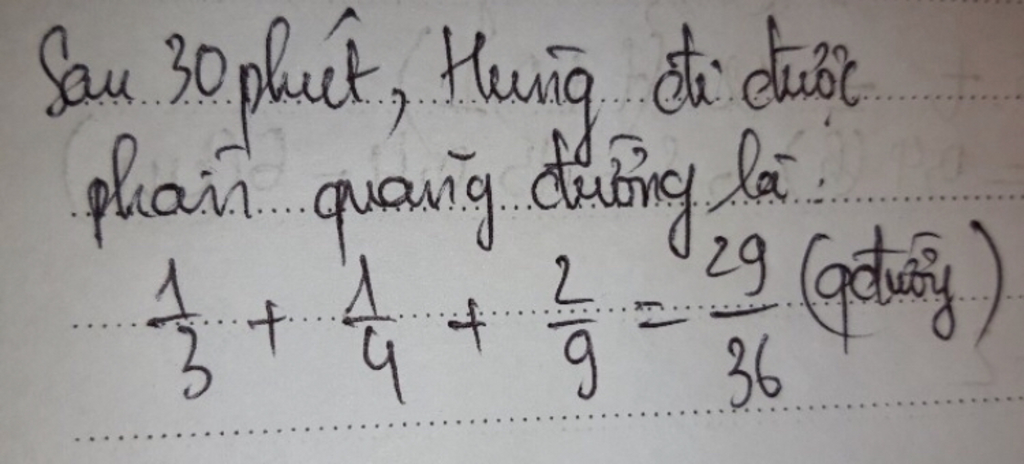 Sau 30 phút, Hùng đi được
phần quãng đường là:
1/3 + 1/4 + 2/9 = 29/36 (qđường)